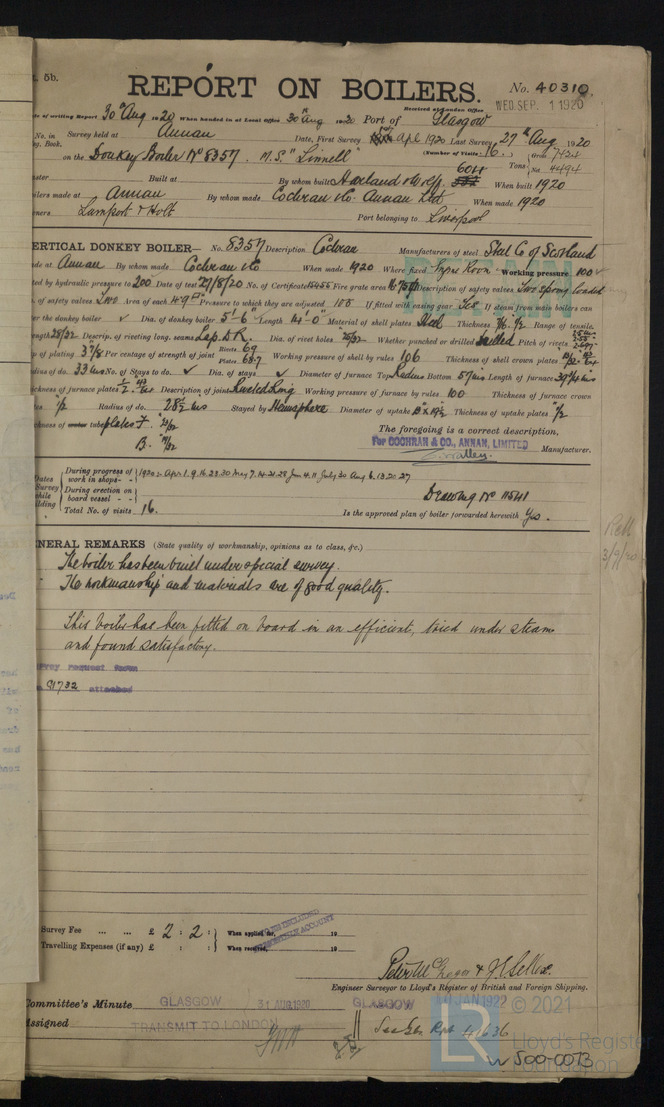 5b.
REPORT ON BOILERS.
No. 40310.
Received at London Office
WED. SEP. 1 1920
of writing Report 30th Aug 1920 When handed in at Local Office 30th Aug 1920 Port of Glasgow
No. in Survey held at Annan Date, First Survey Apl 1920 Last Survey 27th Aug 1920
Book. (Number of Visits 16.)
on the Donkey Boiler No 8357. M.S. "Linnell" Tons Gross 7424 Net 4494
Built at By whom built Harland & Wolff. 6011 When built 1920
made at Annan By whom made Cochran & Co. Annan Ltd When made 1920
Lamport & Holt Port belonging to Liverpool
ERTICAL DONKEY BOILER— No. 8357 Description Cochran Manufacturers of steel Steel Co of Scotland
at Annan By whom made Cochran & Co When made 1920 Where fixed Engine Room Working pressure 100
by hydraulic pressure to 200 Date of test 27/8/20 No. of Certificate 15456 Fire grate area Description of safety valves Two Spring loaded
of safety valves Two Area of each 4.9 Pressure to which they are adjusted 105 If fitted with easing gear Yes If steam from main boilers can
the donkey boiler Dia. of donkey boiler 5'-6" Length 14'-0" Material of shell plates Steel Thickness Range of tensile
28/32 Descrip. of riveting long. seams Lap. D.R. Dia. of rivet holes 25/32 Whether punched or drilled Drilled Pitch of rivets
of plating 3 7/8 Per centage of strength of joint Rivets 69 Plates 68.7 Working pressure of shell by rules 106 Thickness of shell crown plates
of do. 33 ins No. of Stays to do. Dia. of stays Diameter of furnace Top Radius Bottom 57 ins Length of furnace
of furnace plates Description of joint Riveted Ring Working pressure of furnace by rules 100 Thickness of furnace crown
1/2 Radius of do. 28 1/2 ins Stayed by Hemisphere Diameter of uptake Thickness of uptake plates 1/2
of tube plates F. 23/32
B.
The foregoing is a correct description,
For COCHRAN & CO., ANNAN, LIMITED
Manufacturer.
Dates Survey while
During progress of work in shops - - 1920:- Apr 1. 9. 16. 23. 30 May 7. 14. 21. 28 Jun 4. 11 July 30 Aug 6. 13. 20. 27
During erection on board vessel - -
Total No. of visits 16.
Drawing No 11541
Is the approved plan of boiler forwarded herewith Yes.
Retd
3/9/20
NERAL REMARKS (State quality of workmanship, opinions as to class, &c.)
The boiler has been built under special survey.
The workmanship and materials are of good quality.
This boiler has been fitted on board in an efficient, tried under steam
and found satisfactory.
request form
91732 attached
Survey Fee ... ... £ 2 : 2 : When applied for, 19
Travelling Expenses (if any) £ : : When received, 19
Peter McGregor & J. Sellex.
Engineer Surveyor to Lloyd's Register of British and Foreign Shipping.
Committee's Minute GLASGOW 31 AUG. 1920 GLASGOW 10 JAN 1922
ssigned TRANSMIT TO LONDON See Gls Rpt 41636
© 2021
LR
Lloyd's Register
Foundation
W500-0073